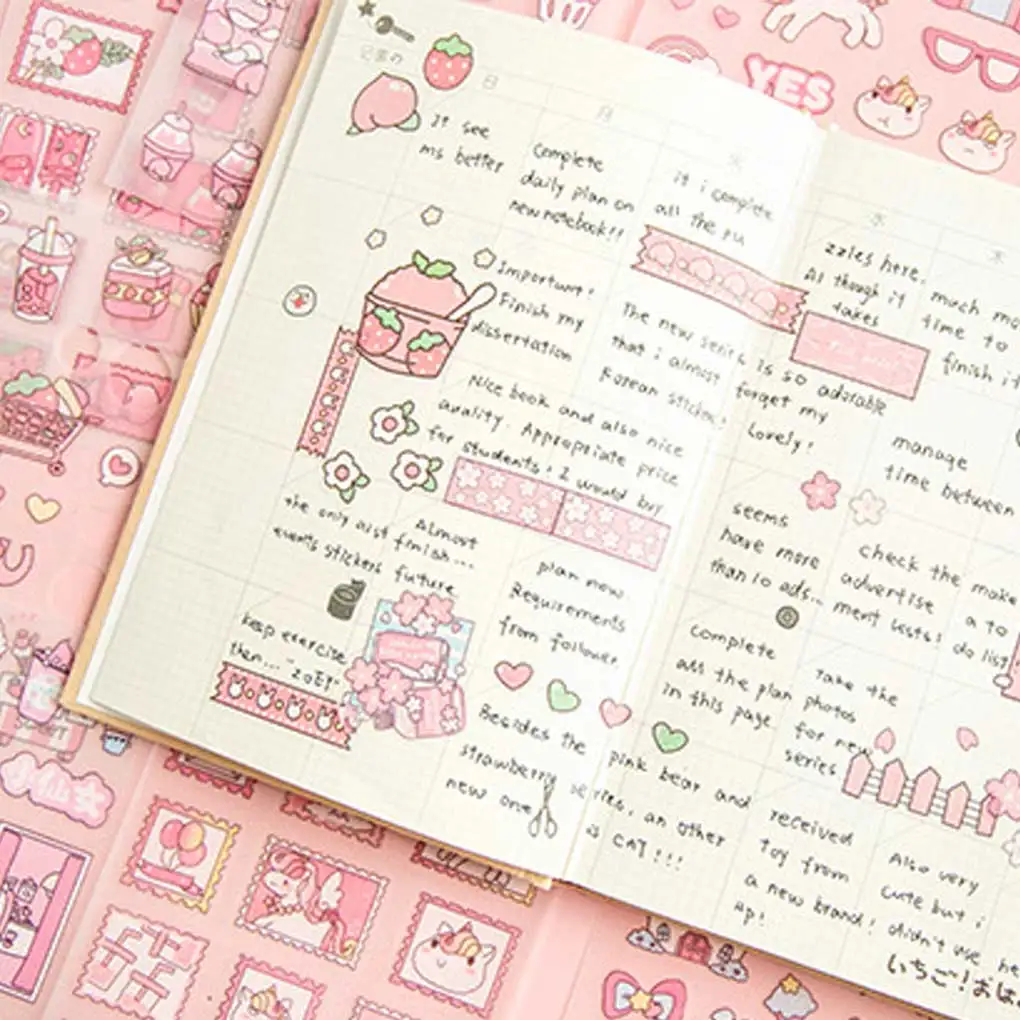 YES
日
月
火
水
木
it see
ms better
Complete
daily plan on
new notebook!!
it i complete
all the pu
zzles here.
Al though it
takes
much mo
time to
finish it
Important!
Finish my
dissertation
The new series is so adorable
that i almost forget my
Korean sticker! Lovely!
Nice book and also nice
quality. Appropriate price
for students! I would buy
manage
time between
the only
events stickers
Almost
finish...
future
plan new
Requirements
from follower
seems
have more
than 10 ads...
check the
advertise
ment lists!
make
a to
do list
keep exercise
then... "20ET"
complete
all the plan
in this page
Take the
photos
for new
series
Besides the pink bear and
strawberry series, an other
new one is CAT!!!
received
toy from
a new brand!
Hp!
Also very
cute but i
didn't use he
いちご!おは